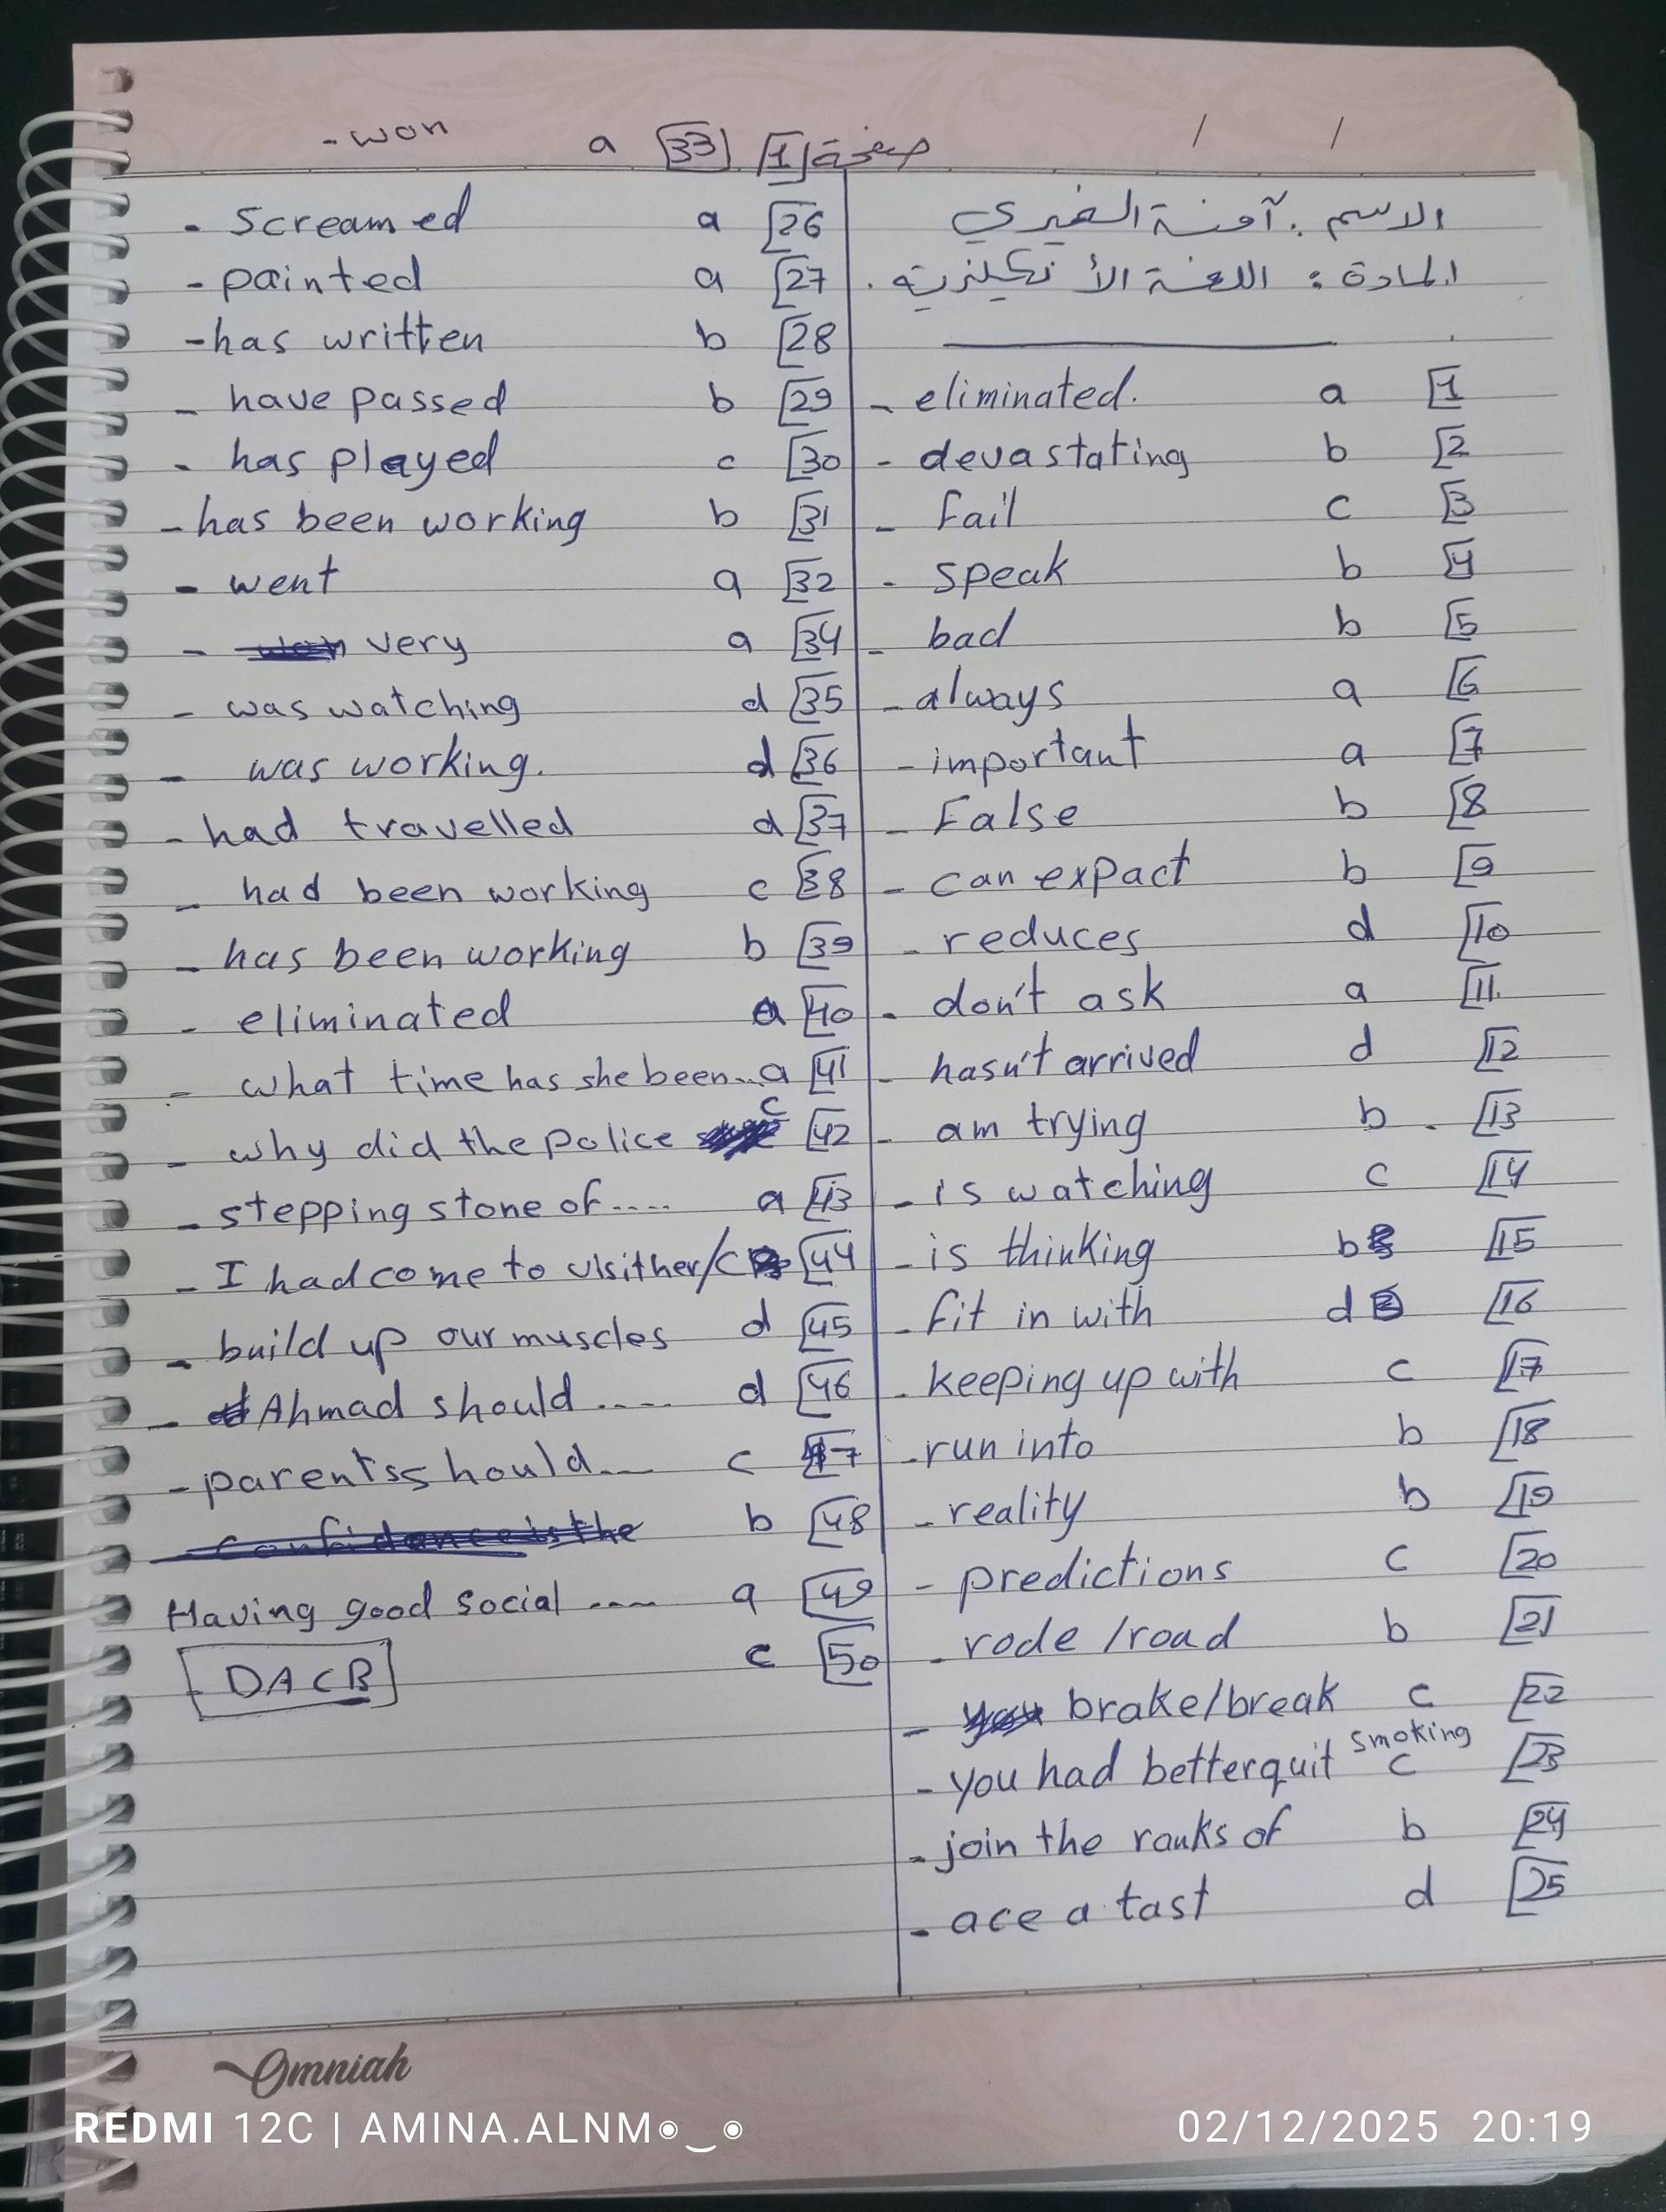 - won a 33 صفحة 1 / /
الاسم : آمنة الخيري
المادة : اللغة الأنكليزية .
- eliminated. a 1
- devastating b 2
- Fail c 3
- speak b 4
- bad b 5
- always a 6
- important a 7
- False b 8
- can expact b 9
- reduces d 10
- don't ask a 11
- hasn't arrived d 12
- am trying b 13
- is watching c 14
- is thinking b 15
- fit in with d 16
- keeping up with c 17
- run into b 18
- reality b 19
- predictions c 20
- rode / road b 21
- brake/break c 22
- you had better quit smoking c 23
- join the ranks of b 24
- ace a tast d 25
- screamed a 26
- painted a 27
- has written b 28
- have passed b 29
- has played c 30
- has been working b 31
- went a 32
- very a 34
- was watching d 35
- was working. d 36
- had travelled d 37
- had been working c 38
- has been working b 39
- eliminated a 40
- what time has she been... a 41
- why did the police c 42
- stepping stone of .... a 43
- I had come to visither/ c 44
- build up our muscles d 45
- Ahmad should .... d 46
- parentsshould.... c 47
b 48
Having good social .... a 49
DACB c 50
Omniah
REDMI 12C | AMINA.ALNM◉‿◉
02/12/2025 20:19